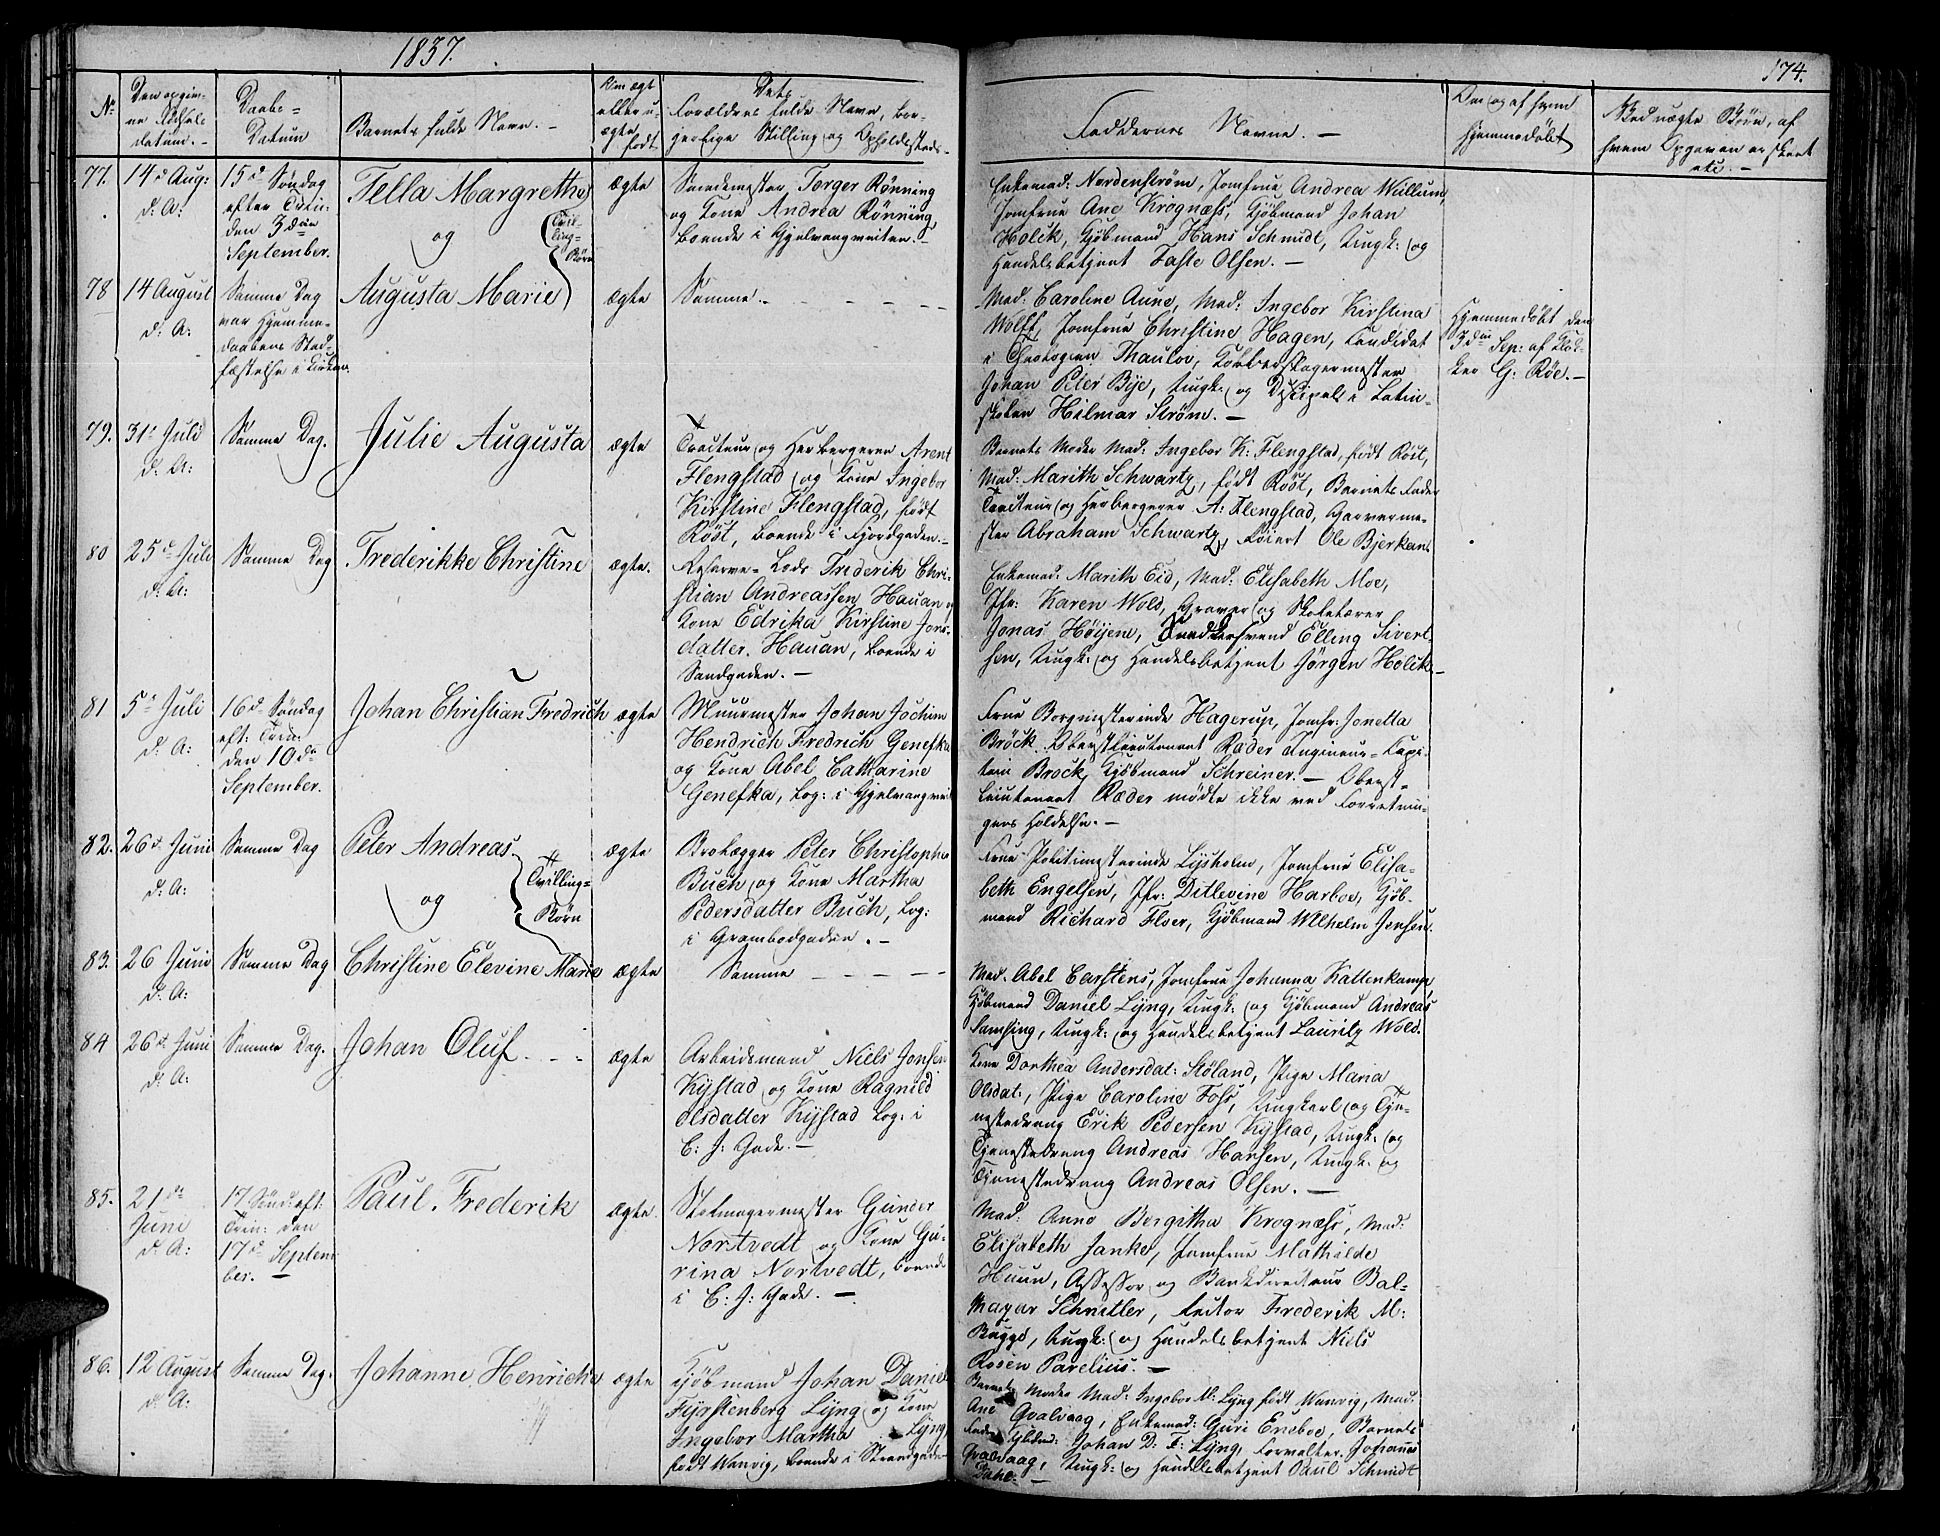 1837.
174.
No
Den opgivne Fødselsdatum. -
Daabs-Datum
Barnets fulde Navn. -
Om ægte eller uægte født
Dets Forældres fulde Navne, borgerlige Stilling og Opholdssted. -
Faddernes Navne. -
Om og af hvem hjemmedøbt
Ved uægte Børn, af hvem Opgaven er skeet etc. -
77. 14d Aug: d: A:
15d Søndag
efter Trin:
den 3die
September.
Tella Margrethe
og
Tvilling-Børn
ægte
Smedemester Torger Rønning
og Kone Andrea Rønning
boende i Gjelvangveiten. -
Enkemad: Nordenstrøm, Jomfrue Andrea Wullum,
Jomfrue Ane Krognæss, Kjøbmand Johan
Holck, Kjøbmand Hans Schmidt, Ungk: og
Handelsbetjent Faste Olsen. -
78 14 August d: A:
Samme Dag
var Hjemme-
daabens Stad-
fæstelse i Kirken.
Augusta Marie
ægte
Samme. - - - - -
Mad: Caroline Aune, Mad: Ingebor Kirstina
Wolff, Jomfrue Christine Hagen, Candidat
i Theologien Thaulov, Kobberslagermester
Johan Peter Bye, Ungk: og Discipel i Latin-
skolen Hilmar Strøm. -
Hjemmedøbt den
3die Sep: af Klok-
ker G: Røe. -
79. 31te Juli d: A:
Samme Dag.
Julie Augusta
ægte
Tracteur og Herbergerer Arent
Flengstad og Kone Ingebor
Kirstine Flengstad, født
Røst, boende i Fjordgaden. -
Barnets Moder Mad: Ingebor K: Flengstad, født Røst,
Mad: Marith Schwartz, født Røst, Barnets Fader
Tracteur og Herbergerer A: Flengstad, Garverme-
ster Abraham Schwartz, Føiert Ole Bjerkan.
80 25d Juli d: A:
Samme Dag
Frederikke Christine
ægte.
Reserve-Lods Frederik Chri-
stian Andreassen Hauan og
Kone Edrika Kirstine Jons-
datter Hauan, boende i
Sandgaden. -
Enkemad: Marith Eid, Mad: Elisabeth Moe,
Jfr: Karen Wold, Graver og Skolelærer
Jonas Høijem, Snedkersvend Elling Sivert-
sen, Ungk: og Handelsbetjent Jørgen Holck. -
81 5te Juli d: A:
16d Søndag
eft: Trin:
den 10de
September.
Johan Christian Fredrich
ægte
Muurmester Johan Jochim
Hendrich Fredrich Genefka
og Kone Abel Catharine
Genefka, Log: i Gjelvangveit
Frue Borgmesterinde Hagerup, Jomfr: Jonetta
Brock, Oberstlieutenant Ræder, Ingenieur-Kapi-
tain Brock, Kjøbmand Schreiner. - Oberst-
lieutenant Ræder mødte ikke ved Forretnin-
gens Holdelse. -
82. 26d Juni d: A:
Samme Dag
Peter Andreas
og
Tvilling-Børn
ægte
Brolægger Peter Christopher
Buch og Kone Martha
Pedersdatter Buch, Log:
i Grambodgaden. -
Frue Politimesterinde Lysholm, Jomfrue Elisa-
beth Engelsen, Jfr: Ditlevine Harboe, Kjøb-
mand Richard Floer, Kjøbmand Wilhelm Jensen.
83. 26 Juni d: A:
Samme Dag
Christine Elevine Marie
ægte
Samme - - - -
Mad. Abel Carstens, Jomfrue Johanna Kattenkamp
Kjøbmand Daniel Lyng, Ungk: og Kjøbmand Andreas
Samsing, Ungk: og Handelsbetjent Lauritz Wold.
84 26d Juni d: A:
Samme Dag.
Johan Oluf. - -
ægte
Arbeidsmand Niels Jonsen
Kystad og Kone Ragnild
Olsdatter Kystad Log: i
C: J: Gade. -
Kone Dorthea Andersdat: Støland, Pige Maria
Olsdat:, Pige Caroline Foss, Ungkarl og Tje-
nestedreng Erik Pedersen Kystad, Ungk: og
Tjenestedreng Andreas Hansen, Ungk: og
Tjenestedreng Andreas Olsen. -
85. 21de Juni d: A:
17 Sønd: eft:
Trin: den
17d Septem-
ber. -
Paul. Frederik
ægte.
Stolmagermester Gunder
Nortvedt og Kone Gu-
rina Nortvedt, boende
i C: J: Gade. -
Mad: Anne Bergitha Krognæss, Mad:
Elisabeth Janke, Jomfrue Mathilde
Huun, Assessor og Bankdirecteur Bal-
thazar Schnitler, Lector Frederik M:
Bugge, Ungk: og Handelsbetjent Niels
Rosen Parelius. -
86. 12 August d: A:
Samme Dag.
Johanne Henricha
ægte
Kjøbmand Johan Daniel
Fyrstenberg Lyng og Kone
Ingebor Martha Lyng
født Wanvig, boende i Strandgaden
Barnets Moder Mad: Ingebor M: Lyng født Wanvig, Mad:
Ane Qvalvaag, Enkemad: Guri Eneboe, Barnets
Fader Kjøbmd: Johan D: F: Lyng, Forvalter Johannes
Qvalvaag, Ungk: og Handelsbetjent Paul Schmidt
Dahl. -